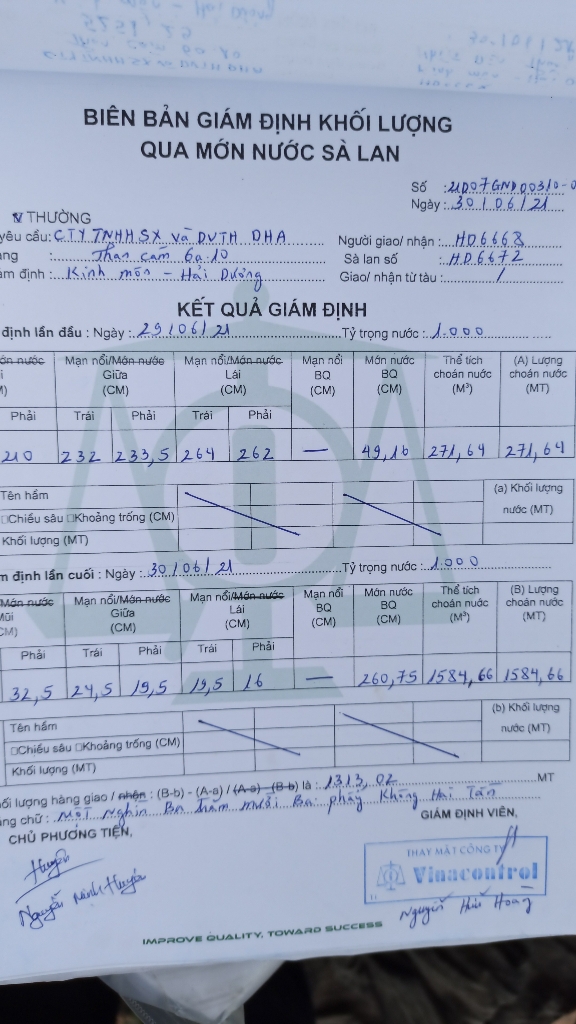 5251/29
BIÊN BẢN GIÁM ĐỊNH KHỐI LƯỢNG
QUA MỚN NƯỚC SÀ LAN
Số : 21D07GND00310-0
Ngày: 30/06/21
THƯỜNG
yêu cầu: CTY TNHH SX và DVTH DHA Người giao/ nhận : HD6668
ng : Than cám 6a.10 Sà lan số : HD.6672
ám định : Kinh môn - Hải Dương Giao/ nhận từ tàu : /
KẾT QUẢ GIÁM ĐỊNH
định lần đầu : Ngày : 29/06/21 Tỷ trọng nước : 1.000
ớn nước Mạn nổi/Mớn nước Mạn nổi/Mớn nước Mạn nổi Mớn nước Thể tích (A) Lượng
i Giữa Lái BQ BQ choán nước choán nước
) (CM) (CM) (CM) (CM) (M³) (MT)
Phải Trái Phải Trái Phải
210 232 233,5 264 262 — 49,16 271,64 271,64
Tên hầm (a) Khối lượng
□Chiều sâu □Khoảng trống (CM) nước (MT)
Khối lượng (MT)
m định lần cuối : Ngày : 30/06/21 Tỷ trọng nước : 1.000
Mớn nước Mạn nổi/Mớn nước Mạn nổi/Mớn nước Mạn nổi Mớn nước Thể tích (B) Lượng
Mũi Giữa Lái BQ BQ choán nước choán nước
CM) (CM) (CM) (CM) (CM) (M³) (MT)
Phải Trái Phải Trái Phải
32,5 24,5 19,5 19,5 16 — 260,75 1584,66 1584,66
Tên hầm (b) Khối lượng
□Chiều sâu □Khoảng trống (CM) nước (MT)
Khối lượng (MT)
ối lượng hàng giao / nhận : (B-b) - (A-a) / (A-a) - (B-b) là : 1313,02 MT
ng chữ : Một Nghìn Ba trăm mười Ba phẩy Không Hai Tấn
CHỦ PHƯƠNG TIỆN, GIÁM ĐỊNH VIÊN,
THAY MẶT CÔNG TY
Vinacontrol
Huyên
Nguyễn Minh Huyên
Nguyễn Hữu Hoàng
IMPROVE QUALITY, TOWARD SUCCESS